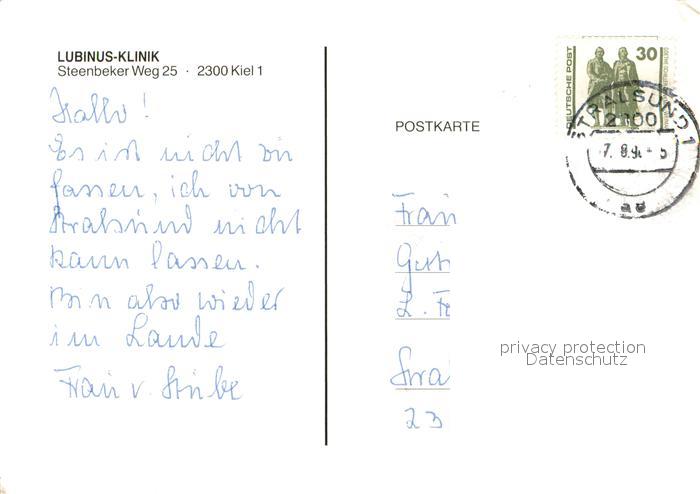 LUBINUS-KLINIK
Steenbeker Weg 25 · 2300 Kiel 1
Hallo!
Es ist nicht zu
fassen, ich von
Stralsund nicht
kann lassen.
Bin also wieder
im Lande
Frau v.
POSTKARTE
Frau
L. Fe
Stra
23
DEUTSCHE POST
30
STRALSUND 1
2300
privacy protection
Datenschutz